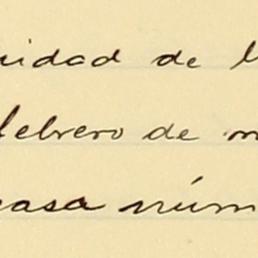 uidad de l
febrero de m
casa núm